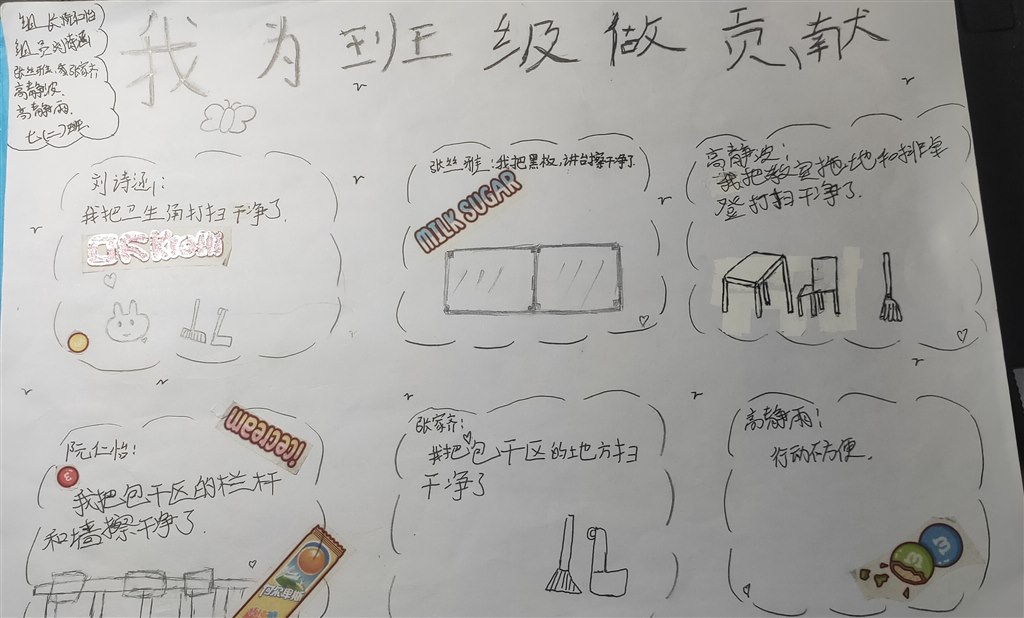 我为班级做贡献
组长阮仁怡
组员刘诗涵
张丝雅、张家齐
高静波.
高静雨.
七(二)班
刘诗涵:
我把卫生角打扫干净了.
张丝雅:我把黑板,讲台擦干净了
MILK SUGAR
高静波:
我把教室拖地和排桌
登打扫干净了.
阮仁怡:
icecream
我把包干区的栏杆
和墙擦干净了.
阿尔卑斯
张家齐:
我把包干区的地方扫
干净了
高静雨:
行动不方便.
m
m